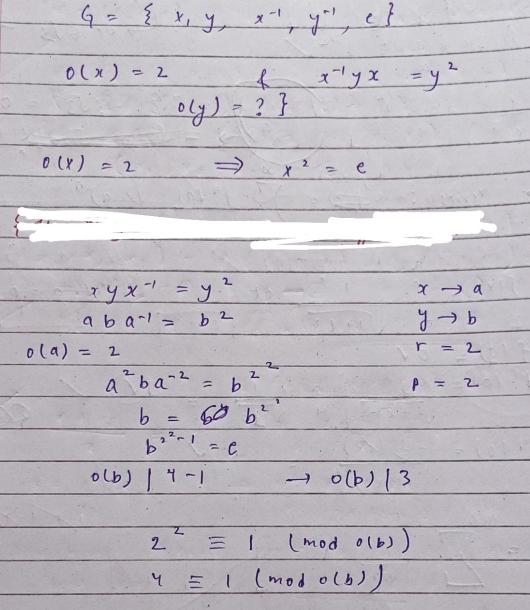 G = { x, y, x⁻¹, y⁻¹, e }
o(x) = 2 & x⁻¹yx = y²
o(y) = ? }
o(x) = 2 ⟹ x² = e
xyx⁻¹ = y² x → a
aba⁻¹ = b² y → b
o(a) = 2 r = 2
a²ba⁻² = b^2^2 p = 2
b = b^2^2
b^2^2-1 = e
o(b) | 4-1 → o(b) | 3
2² ≡ 1 (mod o(b))
4 ≡ 1 (mod o(b))